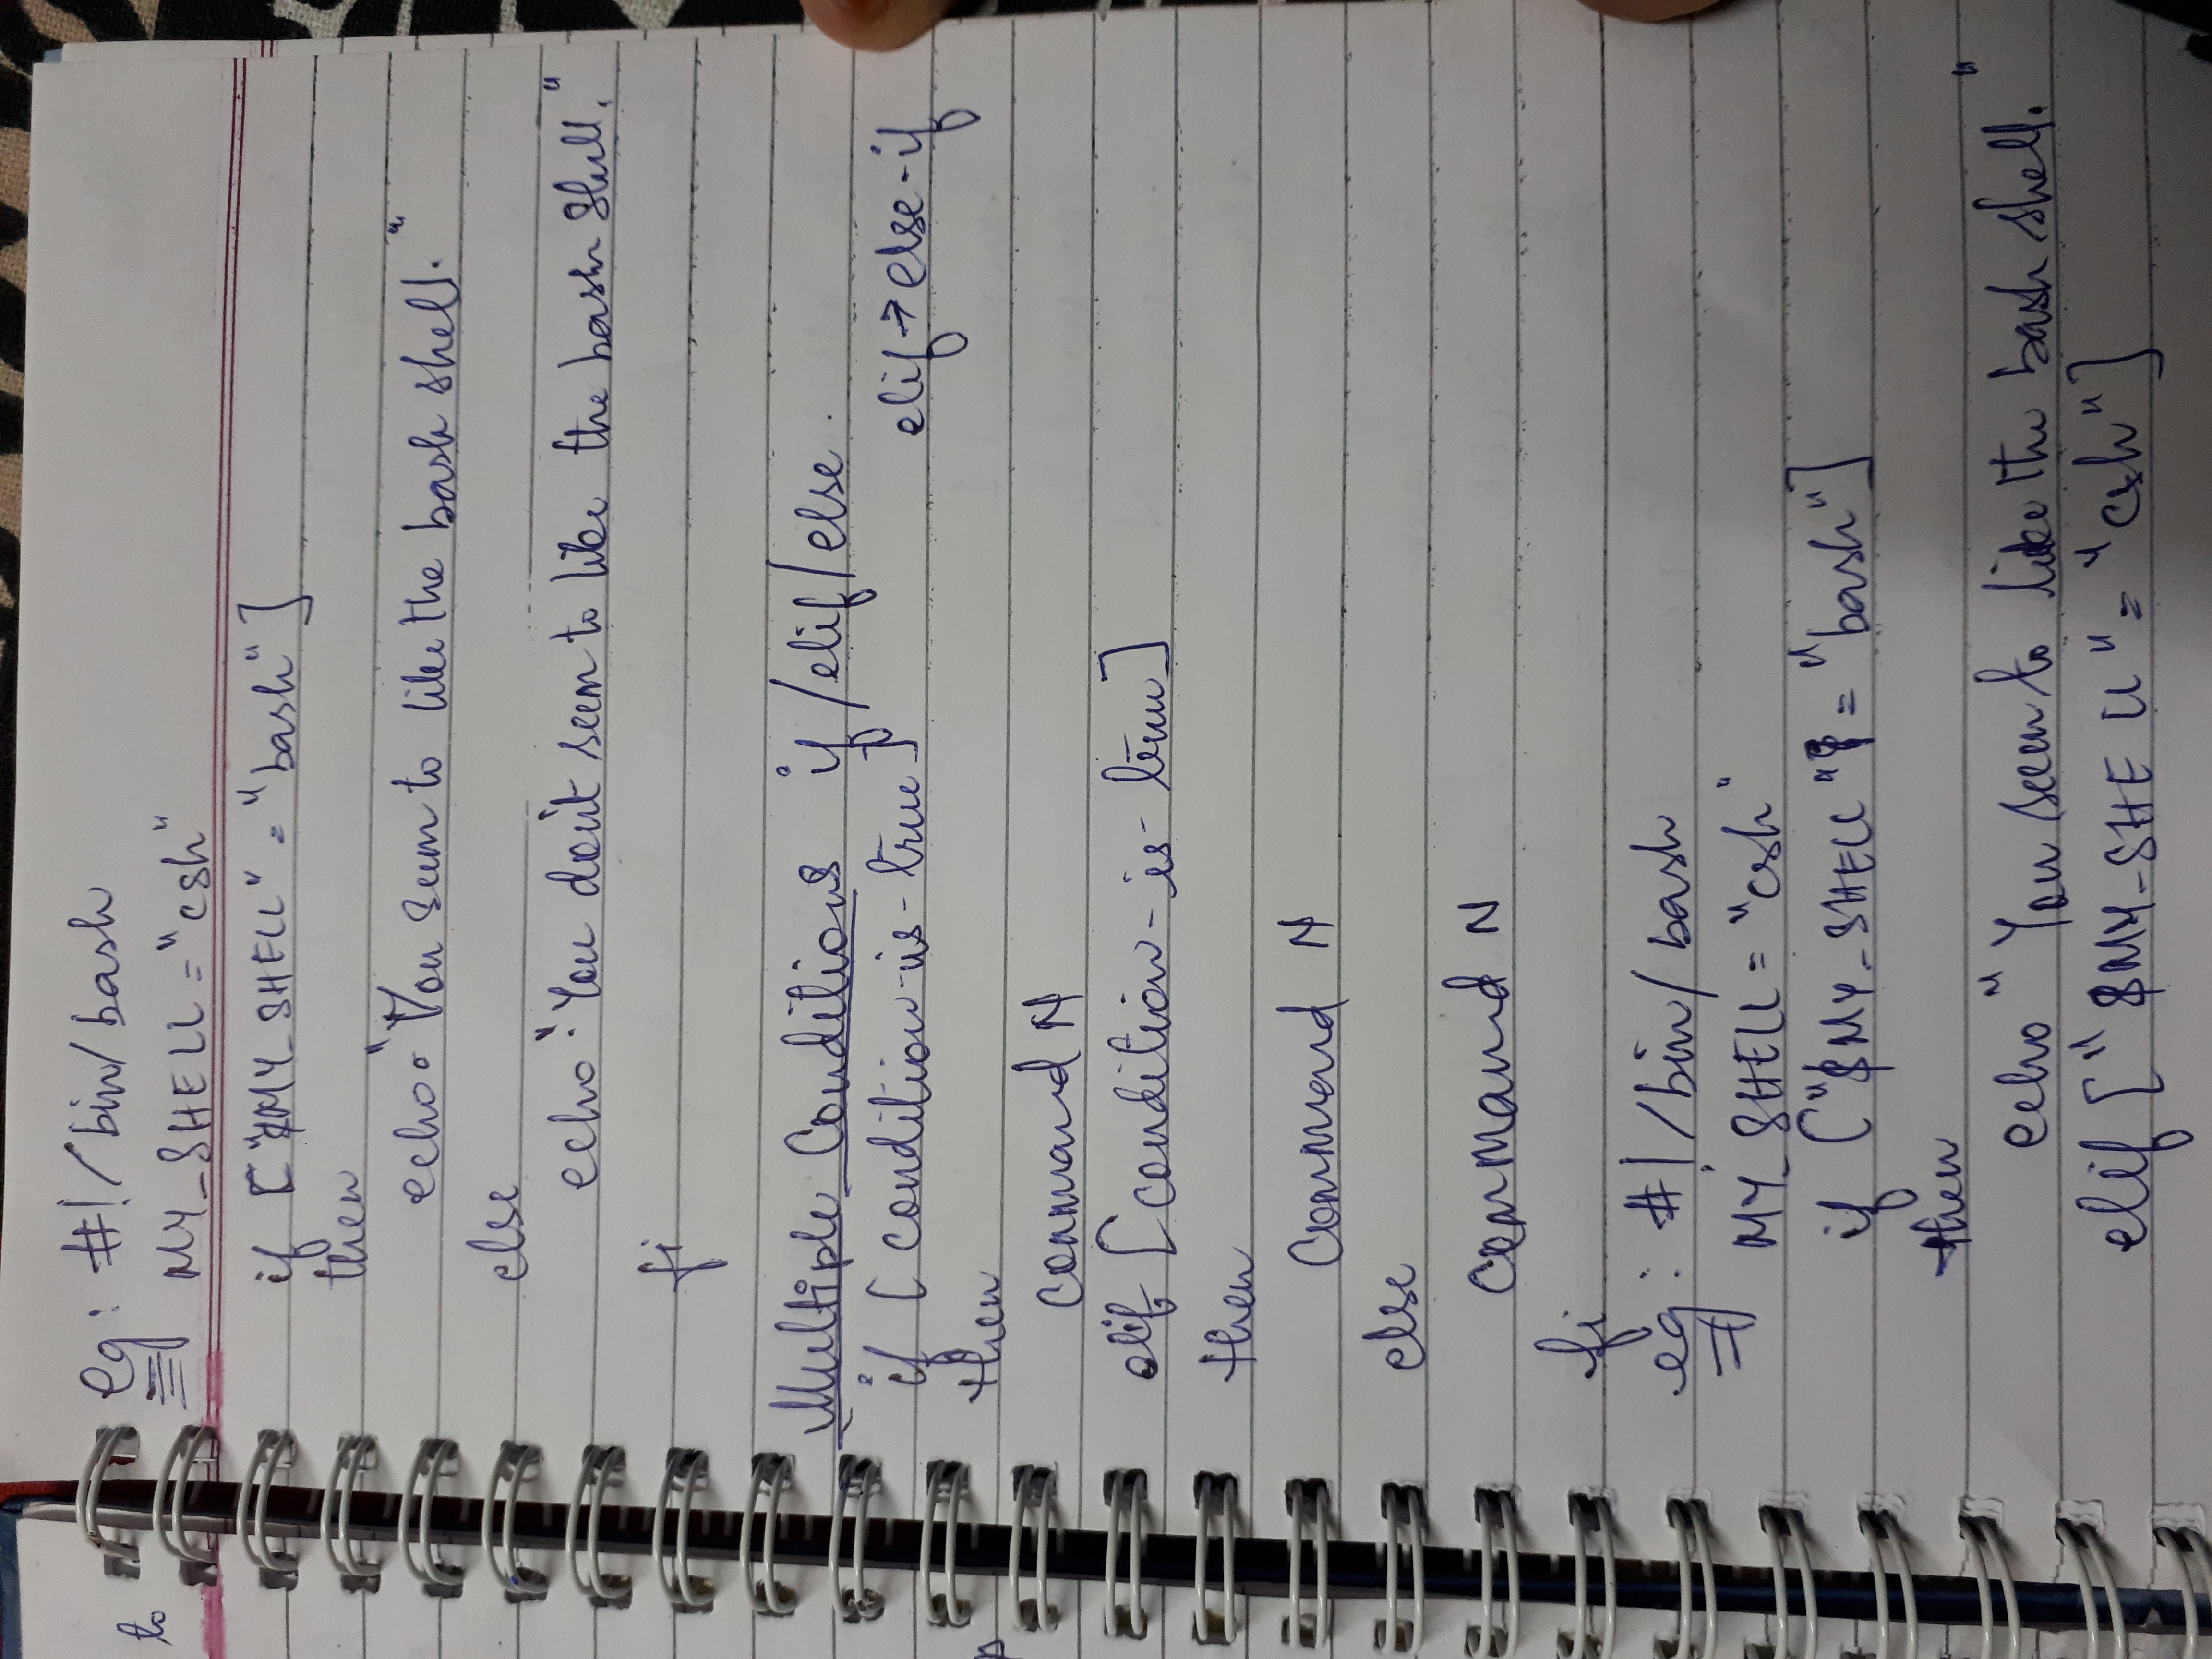 to
eg: #!/bin/bash
MY_SHELL = "csh"
if ["$MY_SHELL" = "bash"]
then
echo "You seem to like the bash shell."
else
echo "You don't seem to like the bash shell."
fi
Multiple Conditions if/elif/else.
if [condition-is-true]
elif → else-if
then
command N
elif [condition-is-true]
then
Command N
else
command N
fi
eg: #!/bin/bash
MY_SHELL = "csh"
if ["$MY_SHELL" = "bash"]
then
echo "You seem to like the bash shell."
elif ["$MY_SHELL" = "csh"]